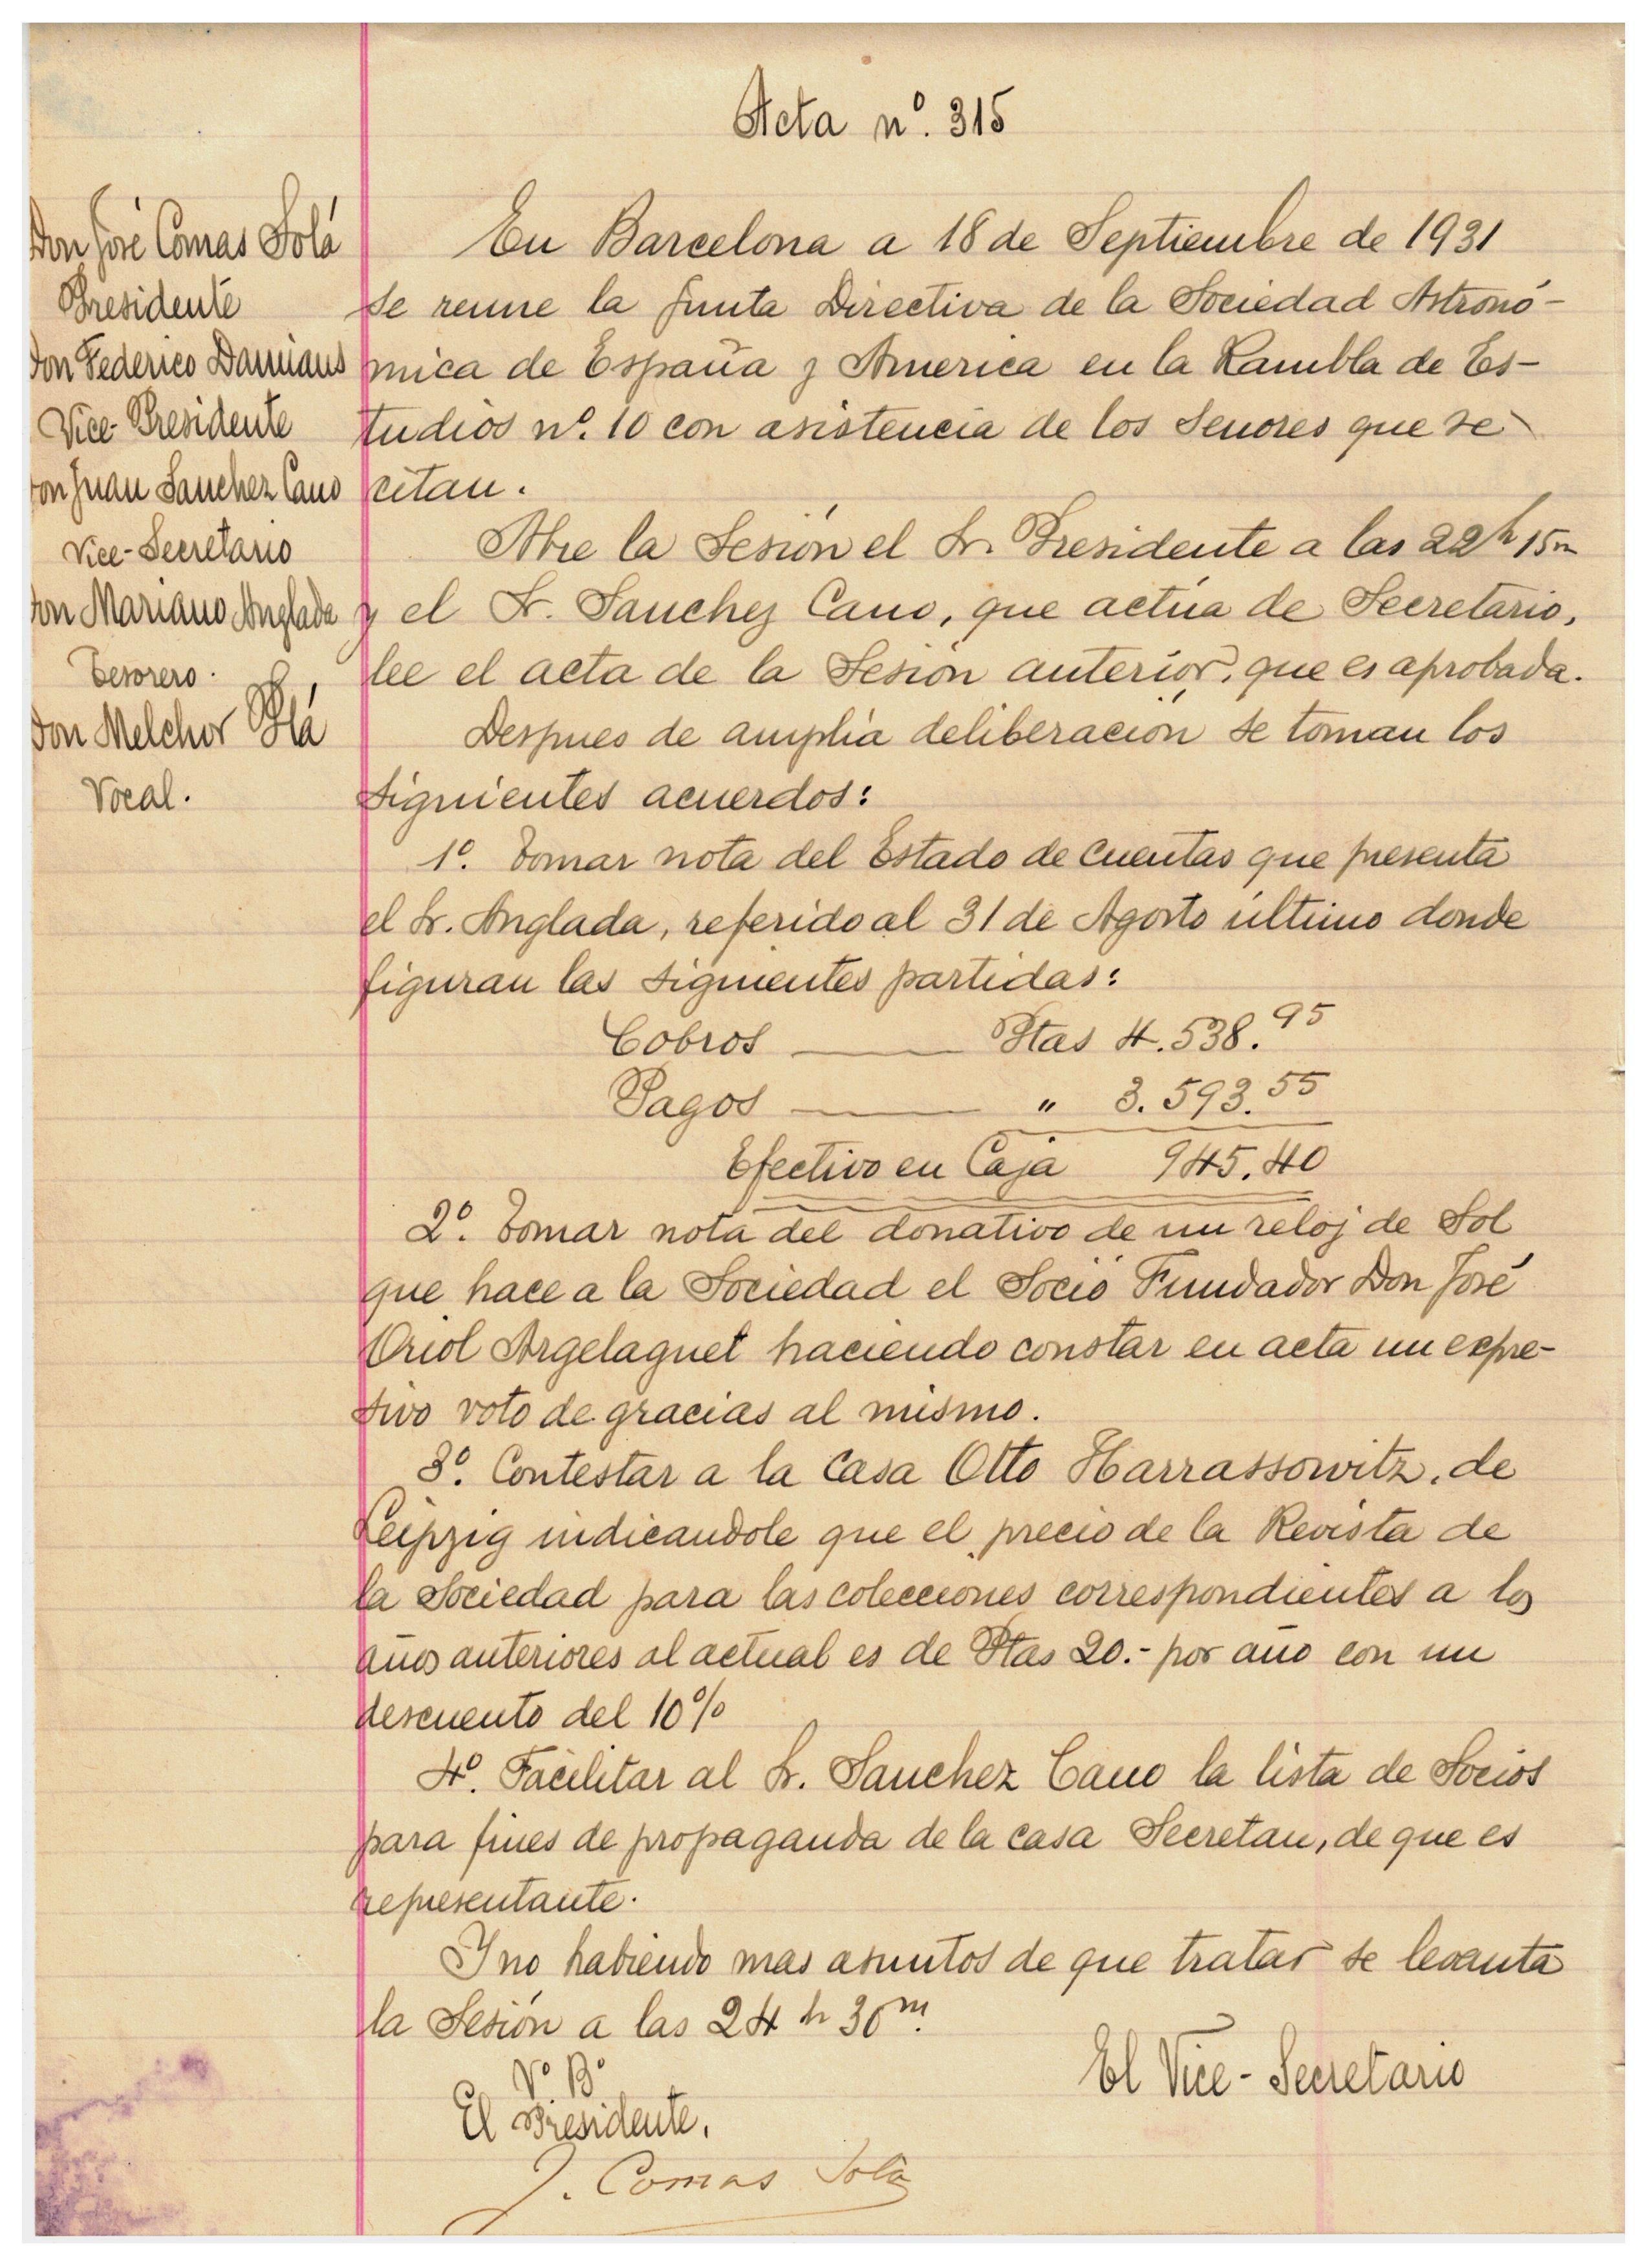 Acta nº. 315
Don José Comas Solá
Presidente
Don Federico Damians
Vice-Presidente
Don Juan Sanchez Cano
Vice-Secretario
Don Mariano Anglada
Tesorero.
Don Melchor Plá
Vocal.
En Barcelona a 18 de Septiembre de 1931
se reune la Junta Directiva de la Sociedad Astronó-
mica de España y America en la Rambla de Es-
tudios nº. 10 con asistencia de los Señores que se
citan.
Abre la Sesión el Sr. Presidente a las 22h 15m
y el Sr. Sanchez Cano, que actúa de Secretario,
lee el acta de la Sesión anterior, que es aprobada.
Despues de amplia deliberación se toman los
siguientes acuerdos:
1º. Tomar nota del Estado de cuentas que presenta
el Sr. Anglada, referido al 31 de Agosto último donde
figuran las siguientes partidas:
Cobros — Ptas 4.538.95
Pagos — " 3.593.55
Efectivo en Caja 945.40
2º. Tomar nota del donativo de un reloj de Sol
que hace a la Sociedad el Socio Fundador Don José
Oriol Argelaguet haciendo constar en acta un expre-
sivo voto de gracias al mismo.
3º. Contestar a la Casa Otto Harrassowitz, de
Leipzig indicandole que el precio de la Revista de
la Sociedad para las colecciones correspondientes a los
años anteriores al actual es de Ptas 20.- por año con un
descuento del 10%
4º. Facilitar al Sr. Sanchez Cano la lista de Socios
para fines de propaganda de la casa Secretan, de que es
representante.
Y no habiendo mas asuntos de que tratar se levanta
la Sesión a las 24 h 30m.
Vº Bº
El Presidente,
J. Comas Solá
El Vice-Secretario